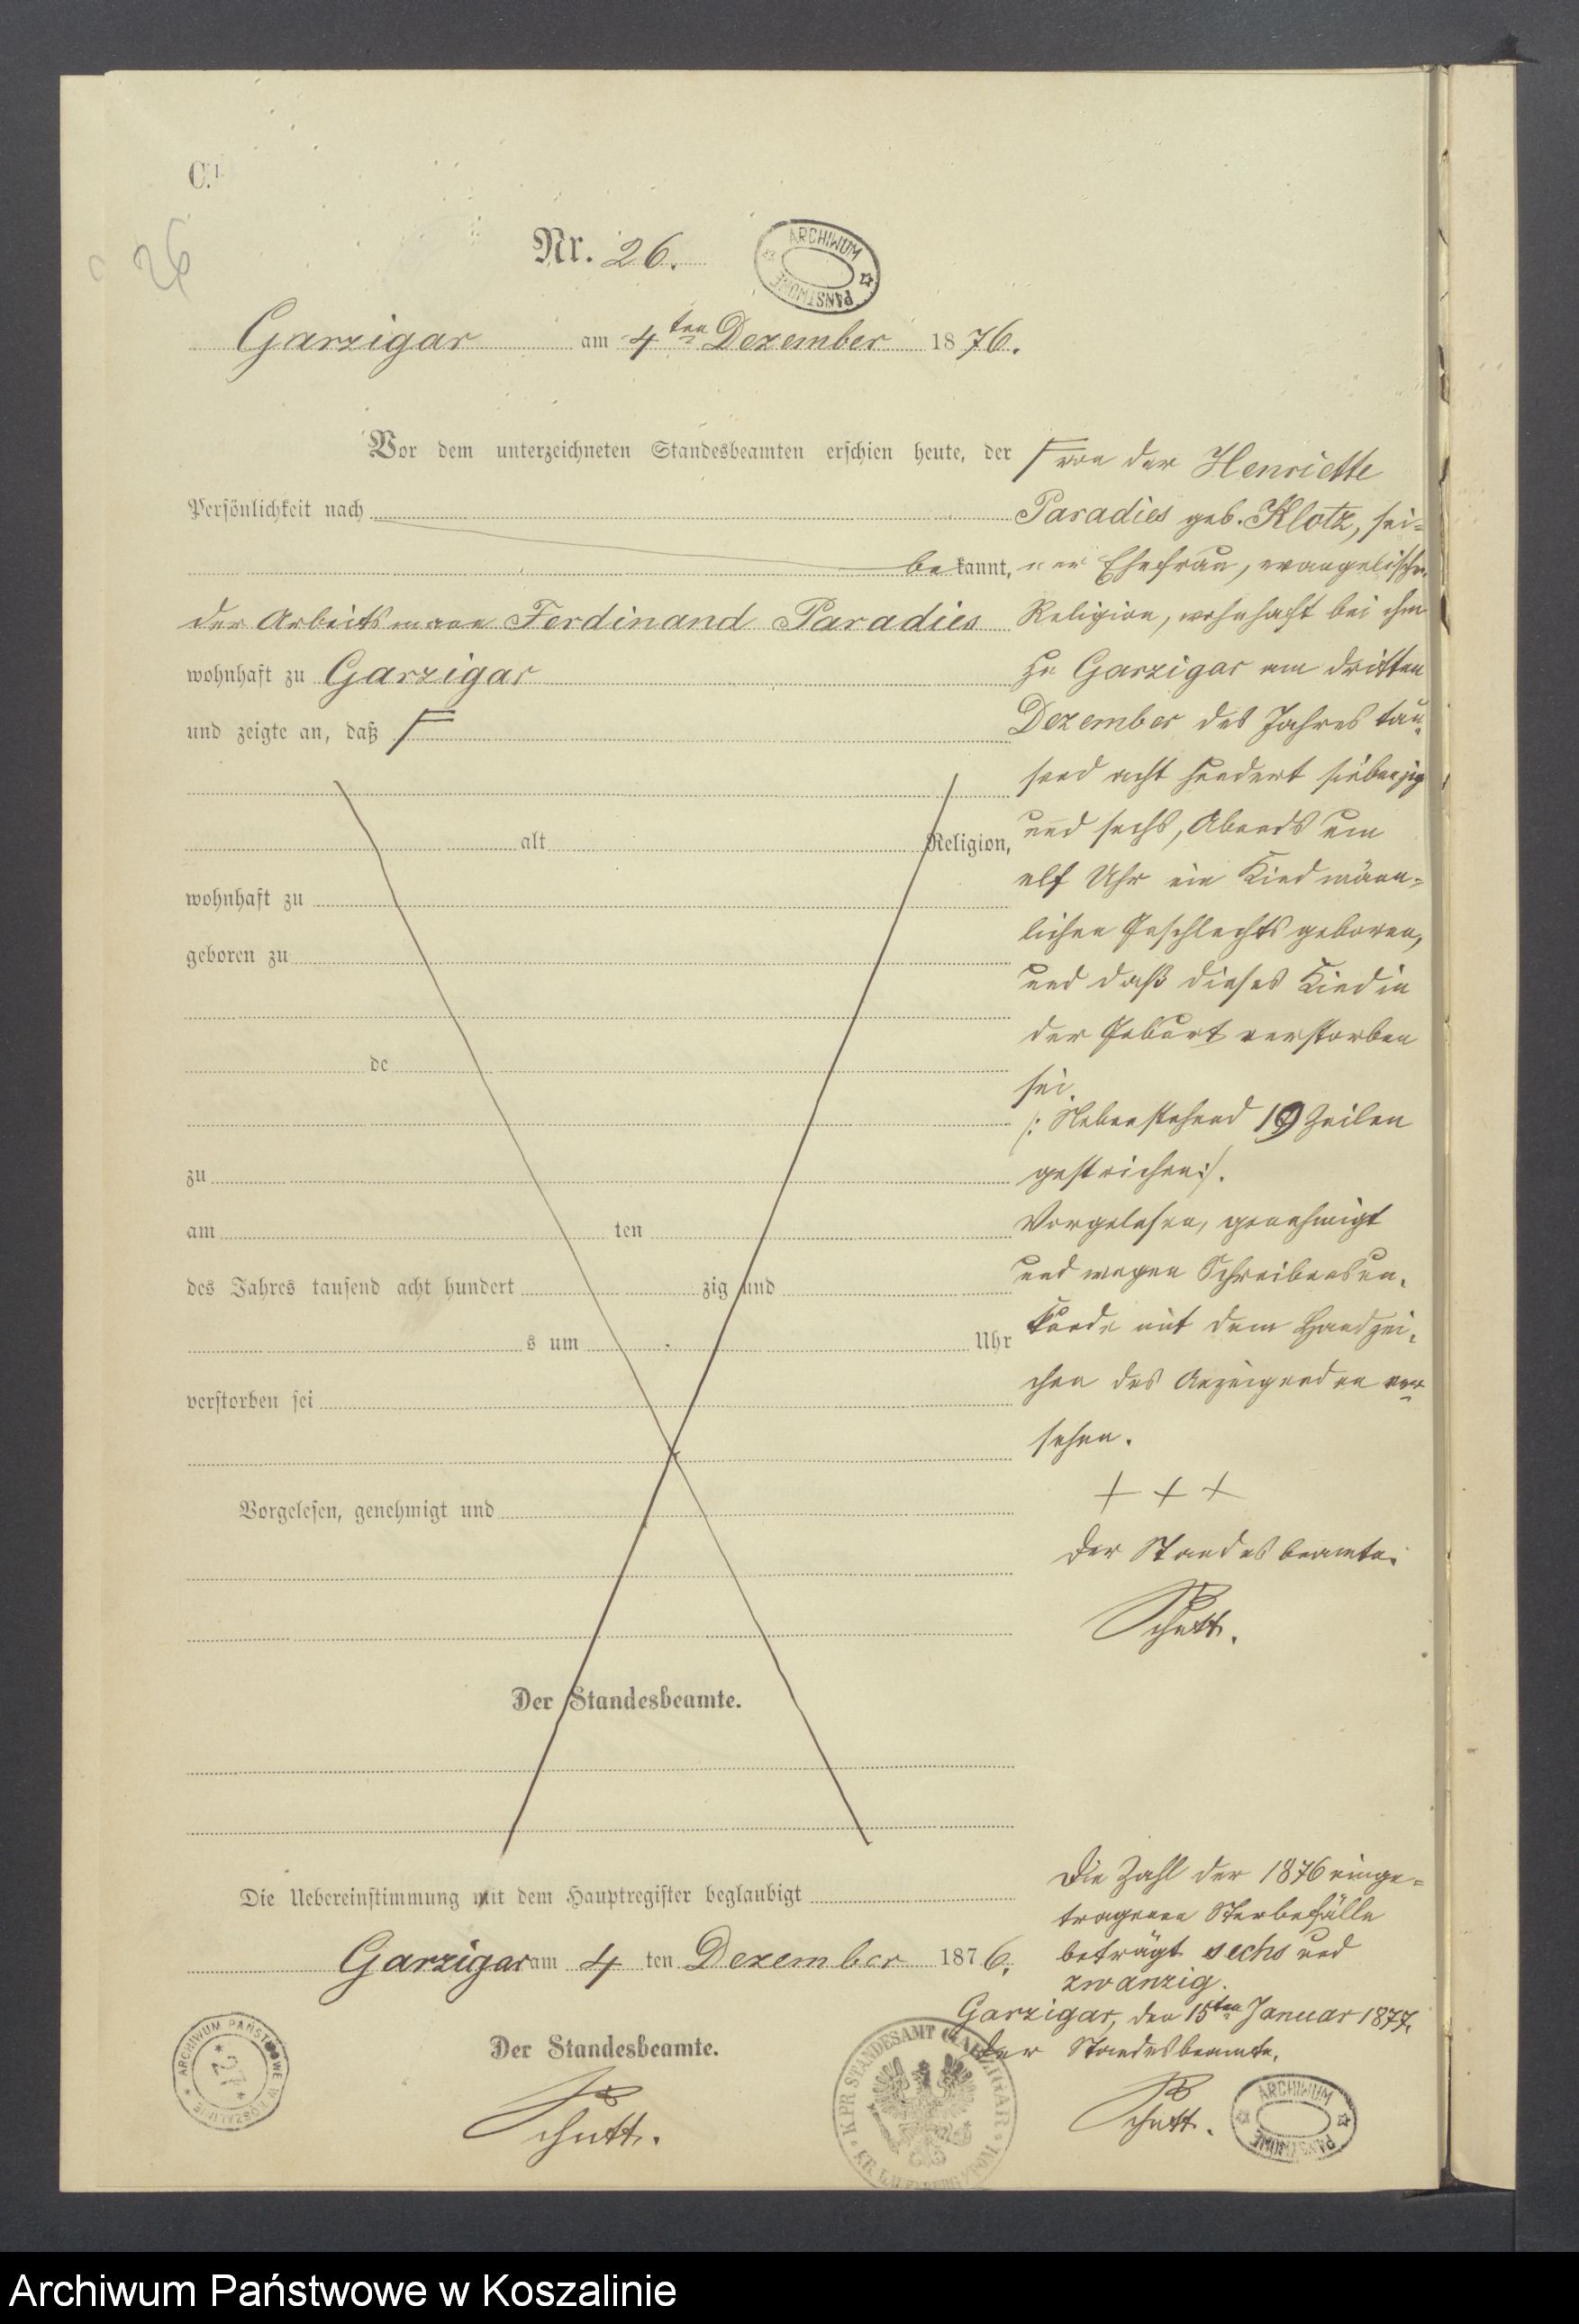 C.
26
Nr. 26.
ARCHIWUM PAŃSTWOWE
Garzigar am 4ten Dezember 1876.
Vor dem unterzeichneten Standesbeamten erschien heute, der
Persönlichkeit nach
bekannt,
der Arbeitsmann Ferdinand Paradies
wohnhaft zu Garzigar
und zeigte an, daß
alt Religion,
wohnhaft zu
geboren zu
de
zu
am ten
des Jahres tausend acht hundert zig und
s um Uhr
verstorben sei
Vorgelesen, genehmigt und
Der Standesbeamte.
von der Henriette
Paradies geb. Klotz, sei-
ner Ehefrau, evangelischer
Religion, wohnhaft bei ihm
zu Garzigar am dritten
Dezember des Jahres tau-
send acht hundert siebenzig
und sechs, Abends um
elf Uhr ein Kind männ-
lichen Geschlechts geboren,
und daß dieses Kind in
der Geburt verstorben
sei.
/: Nebenstehend 19 Zeilen
gestrichen :/.
Vorgelesen, genehmigt
und wegen Schreibensun-
kunde mit dem Handzei-
chen des Anzeigenden ver-
sehen.
+ + +
Der Standesbeamte.
Schutt.
Die Uebereinstimmung mit dem Hauptregister beglaubigt
Garzigar am 4 ten Dezember 1876.
Der Standesbeamte.
Schutt.
Die Zahl der 1876 einge-
tragenen Sterbefälle
beträgt sechs und
zwanzig.
Garzigar, den 15ten Januar 1877.
Der Standesbeamte.
Schutt.
ARCHIWUM PAŃSTWOWE W KOSZALINIE
27
K.PR. STANDESAMT GARZIGAR
ARCHIWUM PAŃSTWOWE
Archiwum Państwowe w Koszalinie